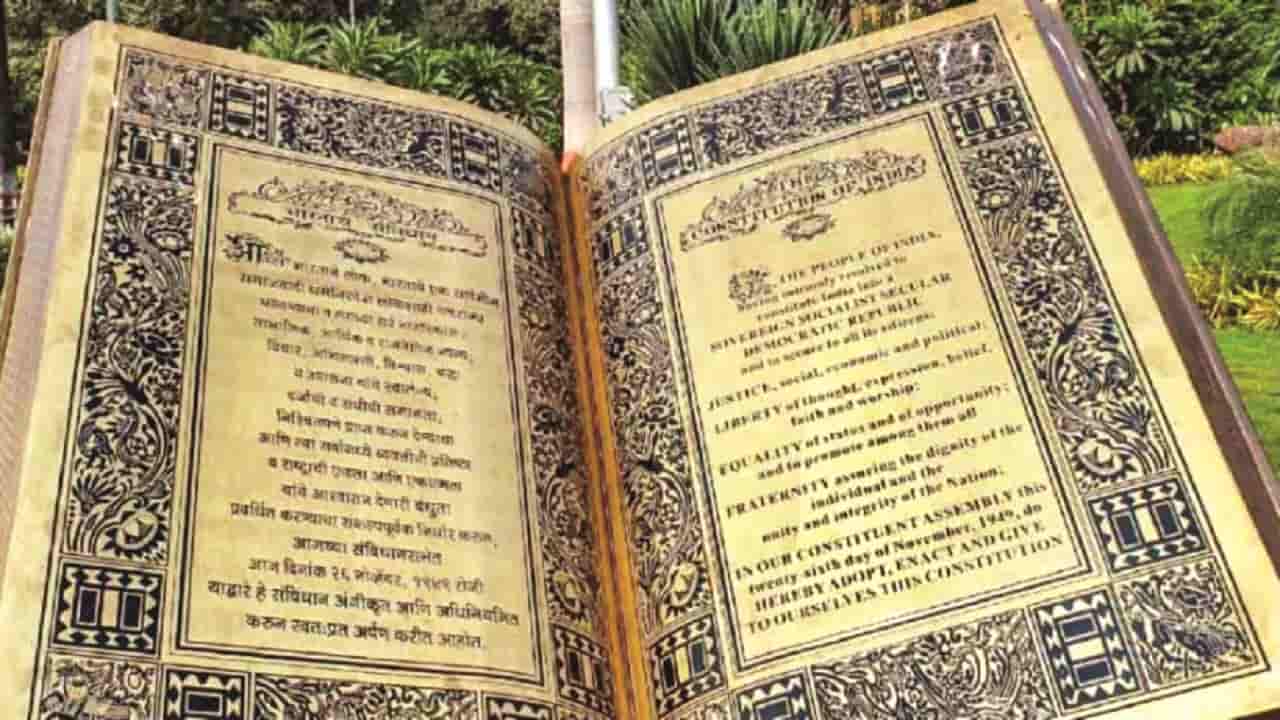 भारताचे संविधान
आम्ही भारताचे लोक, भारताचे एक सार्वभौम
समाजवादी धर्मनिरपेक्ष लोकशाही गणराज्य
घडविण्याचा व त्याच्या सर्व नागरिकांस:
सामाजिक, आर्थिक व राजनैतिक न्याय;
विचार, अभिव्यक्ती, विश्वास, श्रद्धा
व उपासना यांचे स्वातंत्र्य;
दर्जाची व संधीची समानता;
निश्चितपणे प्राप्त करून देण्याचा
आणि त्या सर्वांमध्ये व्यक्तीची प्रतिष्ठा
व राष्ट्राची एकता आणि एकात्मता
यांचे आश्वासन देणारी बंधुता
प्रवर्धित करण्याचा संकल्पपूर्वक निर्धार करून;
आमच्या संविधानसभेत
आज दिनांक २६ नोव्हेंबर, १९४९ रोजी
याद्वारे हे संविधान अंगीकृत आणि अधिनियमित
करून स्वतःप्रत अर्पण करीत आहोत.
THE
CONSTITUTION OF INDIA
WE, THE PEOPLE OF INDIA,
having solemnly resolved to
constitute India into a
SOVEREIGN SOCIALIST SECULAR
DEMOCRATIC REPUBLIC
and to secure to all its citizens:
JUSTICE, social, economic and political;
LIBERTY of thought, expression, belief,
faith and worship;
EQUALITY of status and of opportunity;
and to promote among them all
FRATERNITY assuring the dignity of the
individual and the
unity and integrity of the Nation;
IN OUR CONSTITUENT ASSEMBLY this
twenty-sixth day of November, 1949, do
HEREBY ADOPT, EXACT AND GIVE
TO OURSELVES THIS CONSTITUTION